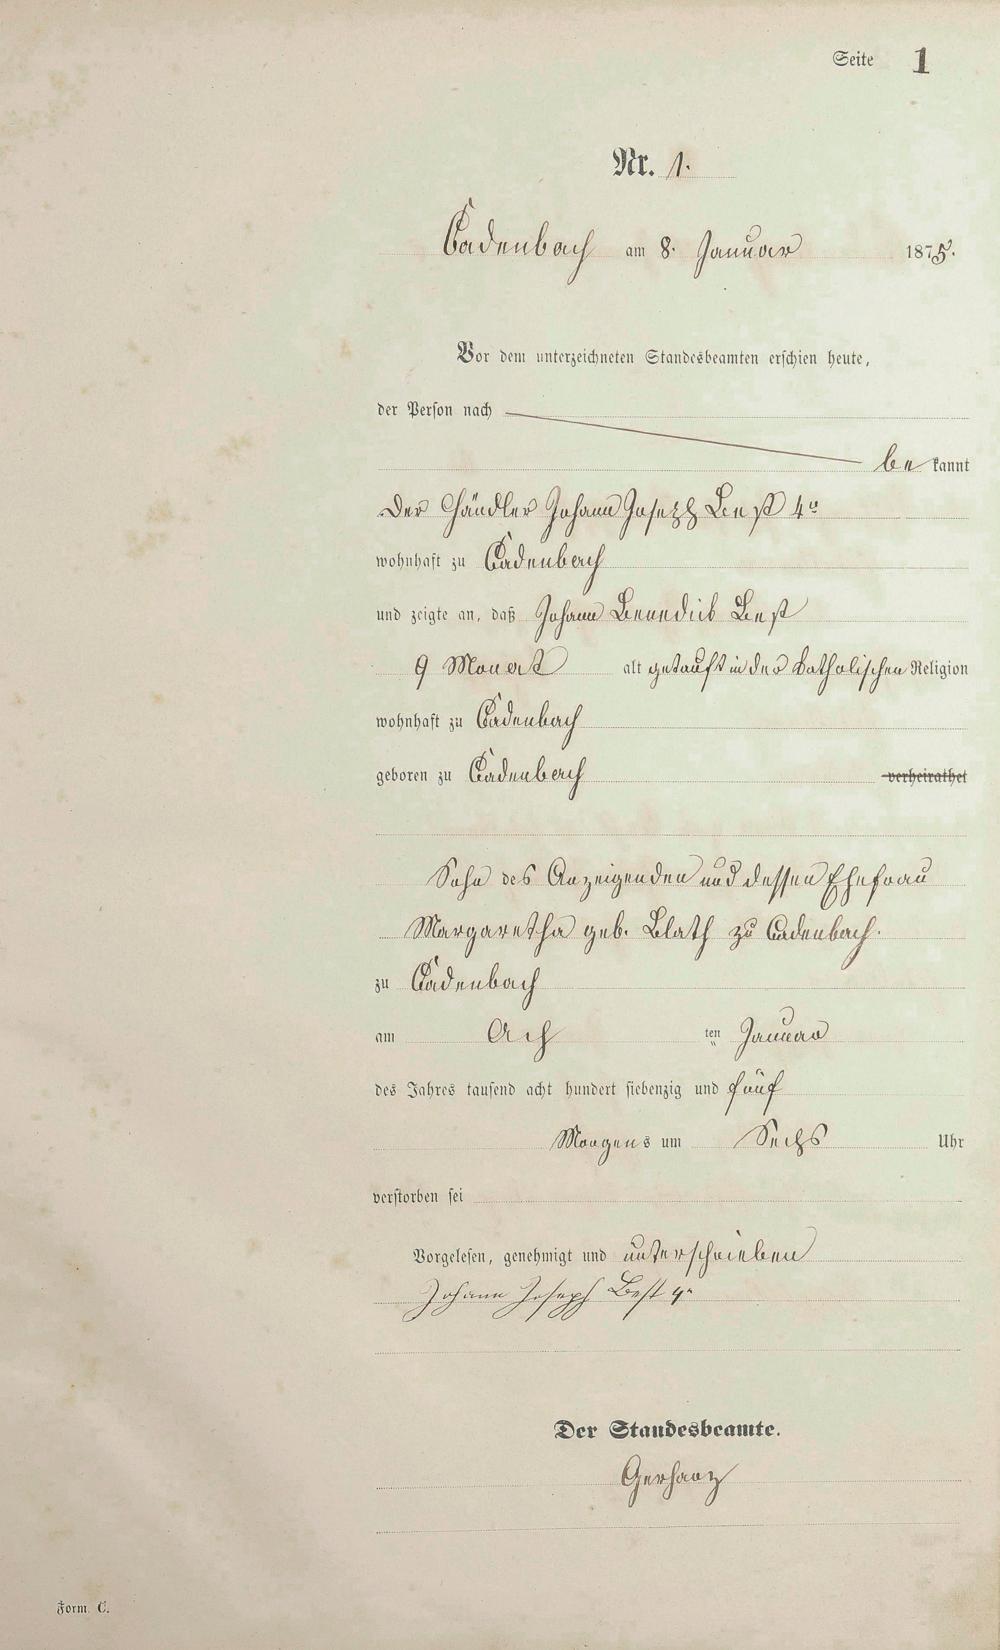 Seite 1
Nr. 1.
Cadenbach am 8. Januar 1875.
Vor dem unterzeichneten Standesbeamten erschien heute,
der Person nach
be kannt
Der Händler Johann Joseph Best 4r
wohnhaft zu Cadenbach
und zeigte an, daß Johann Benedict Best
9 Monat alt getauft in der katholischen Religion
wohnhaft zu Cadenbach
geboren zu Cadenbach verheirathet
Sohn des Anzeigenden und dessen Ehefrau
Margaretha geb. Blath zu Cadenbach.
zu Cadenbach
am Ach ten Januar
des Jahres tausend acht hundert siebenzig und fünf
Morgens um Sechs Uhr
verstorben sei
Vorgelesen, genehmigt und unterschrieben
Johann Joseph Best 4r
Der Standesbeamte.
Gerharz
Form. C.